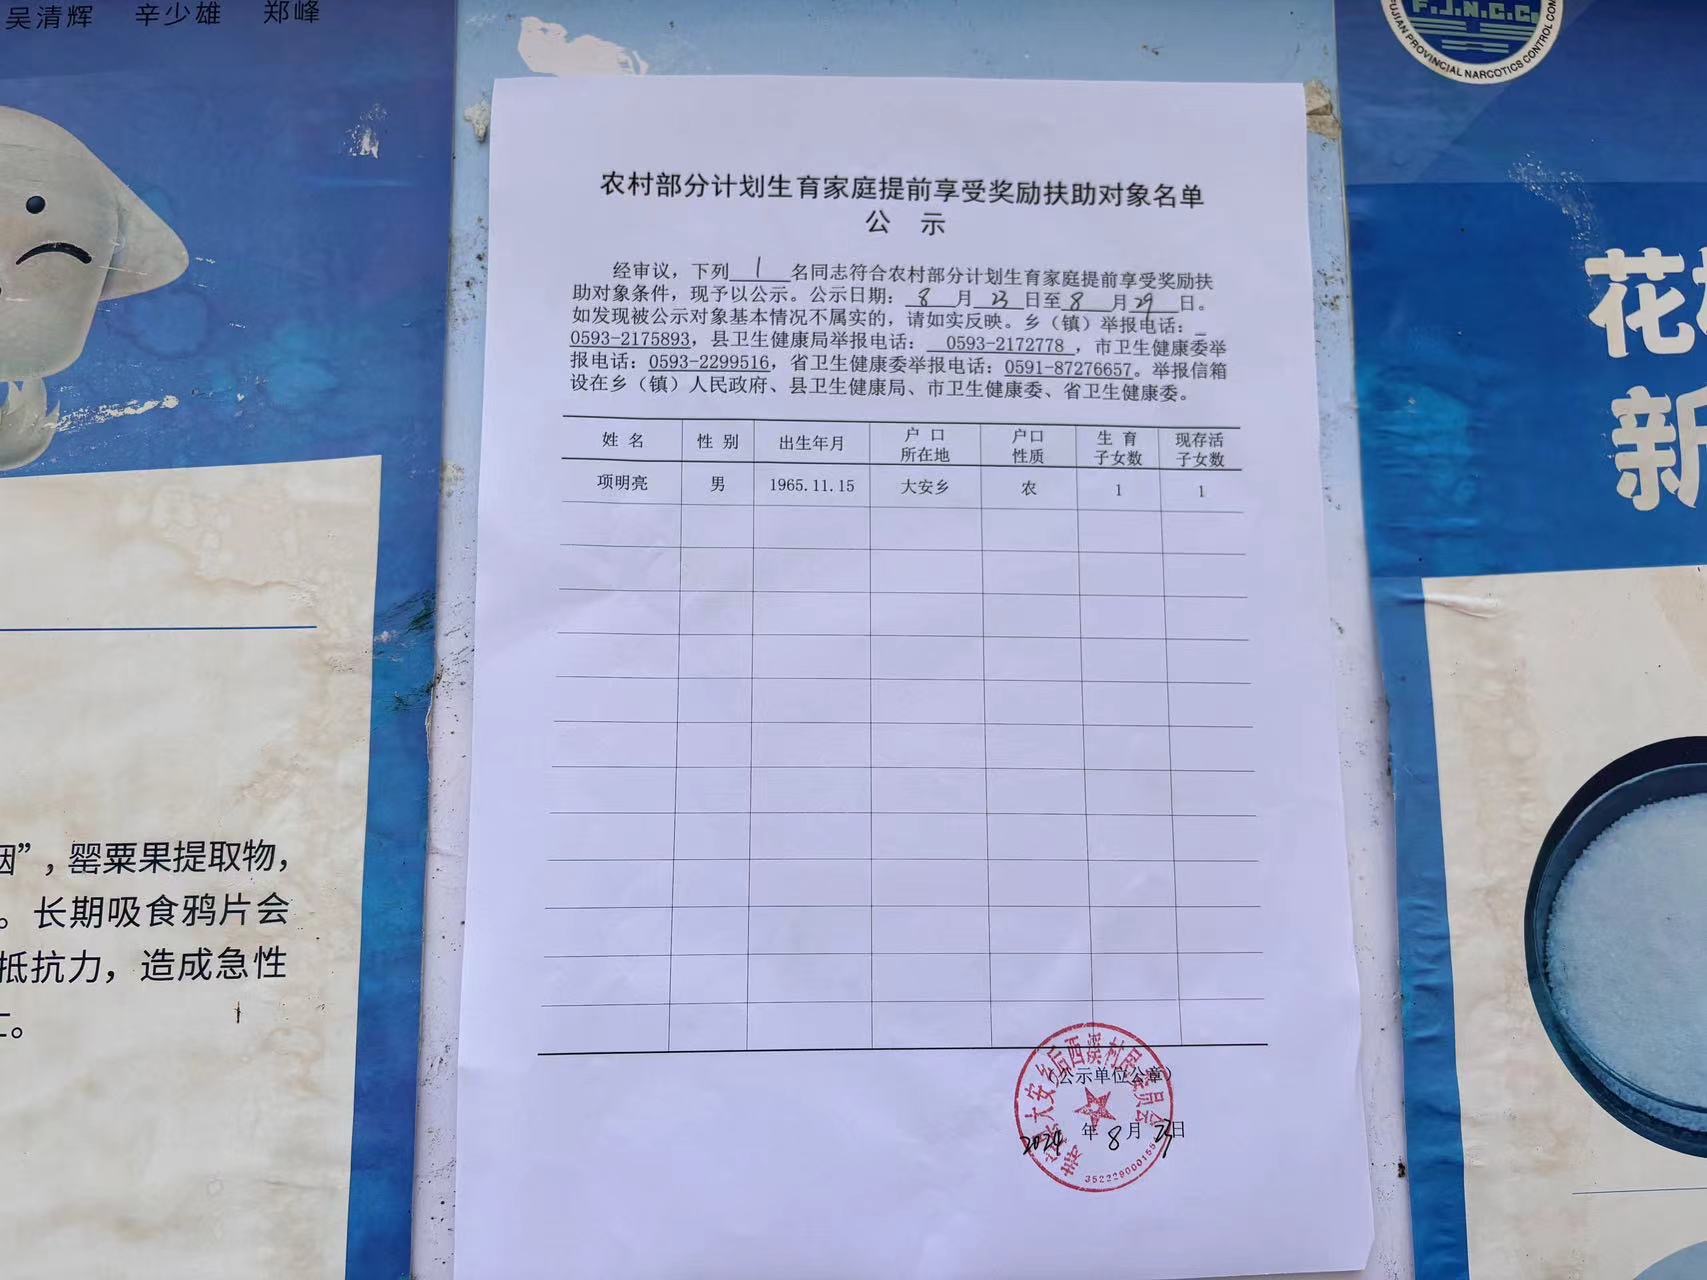 吴清辉 辛少雄 郑峰
F.J.N.C.C.
FUJIAN PROVINCIAL NARCOTICS CONTROL COM
农村部分计划生育家庭提前享受奖励扶助对象名单
公 示
经审议，下列 1 名同志符合农村部分计划生育家庭提前享受奖励扶
助对象条件，现予以公示。公示日期： 8 月 23 日至 8 月 29 日。
如发现被公示对象基本情况不属实的，请如实反映。乡（镇）举报电话：
0593-2175893，县卫生健康局举报电话： 0593-2172778 ，市卫生健康委举
报电话：0593-2299516，省卫生健康委举报电话：0591-87276657。举报信箱
设在乡（镇）人民政府、县卫生健康局、市卫生健康委、省卫生健康委。
姓 名 性 别 出生年月 户 口 所在地 户口 性质 生 育 子女数 现存活 子女数
项明亮 男 1965.11.15 大安乡 农 1 1
（公示单位公章）
大安乡后西溪村民委员会
2024 年 8 月 23 日
花
新
”，罂粟果提取物，
。长期吸食鸦片会
抵抗力，造成急性
。